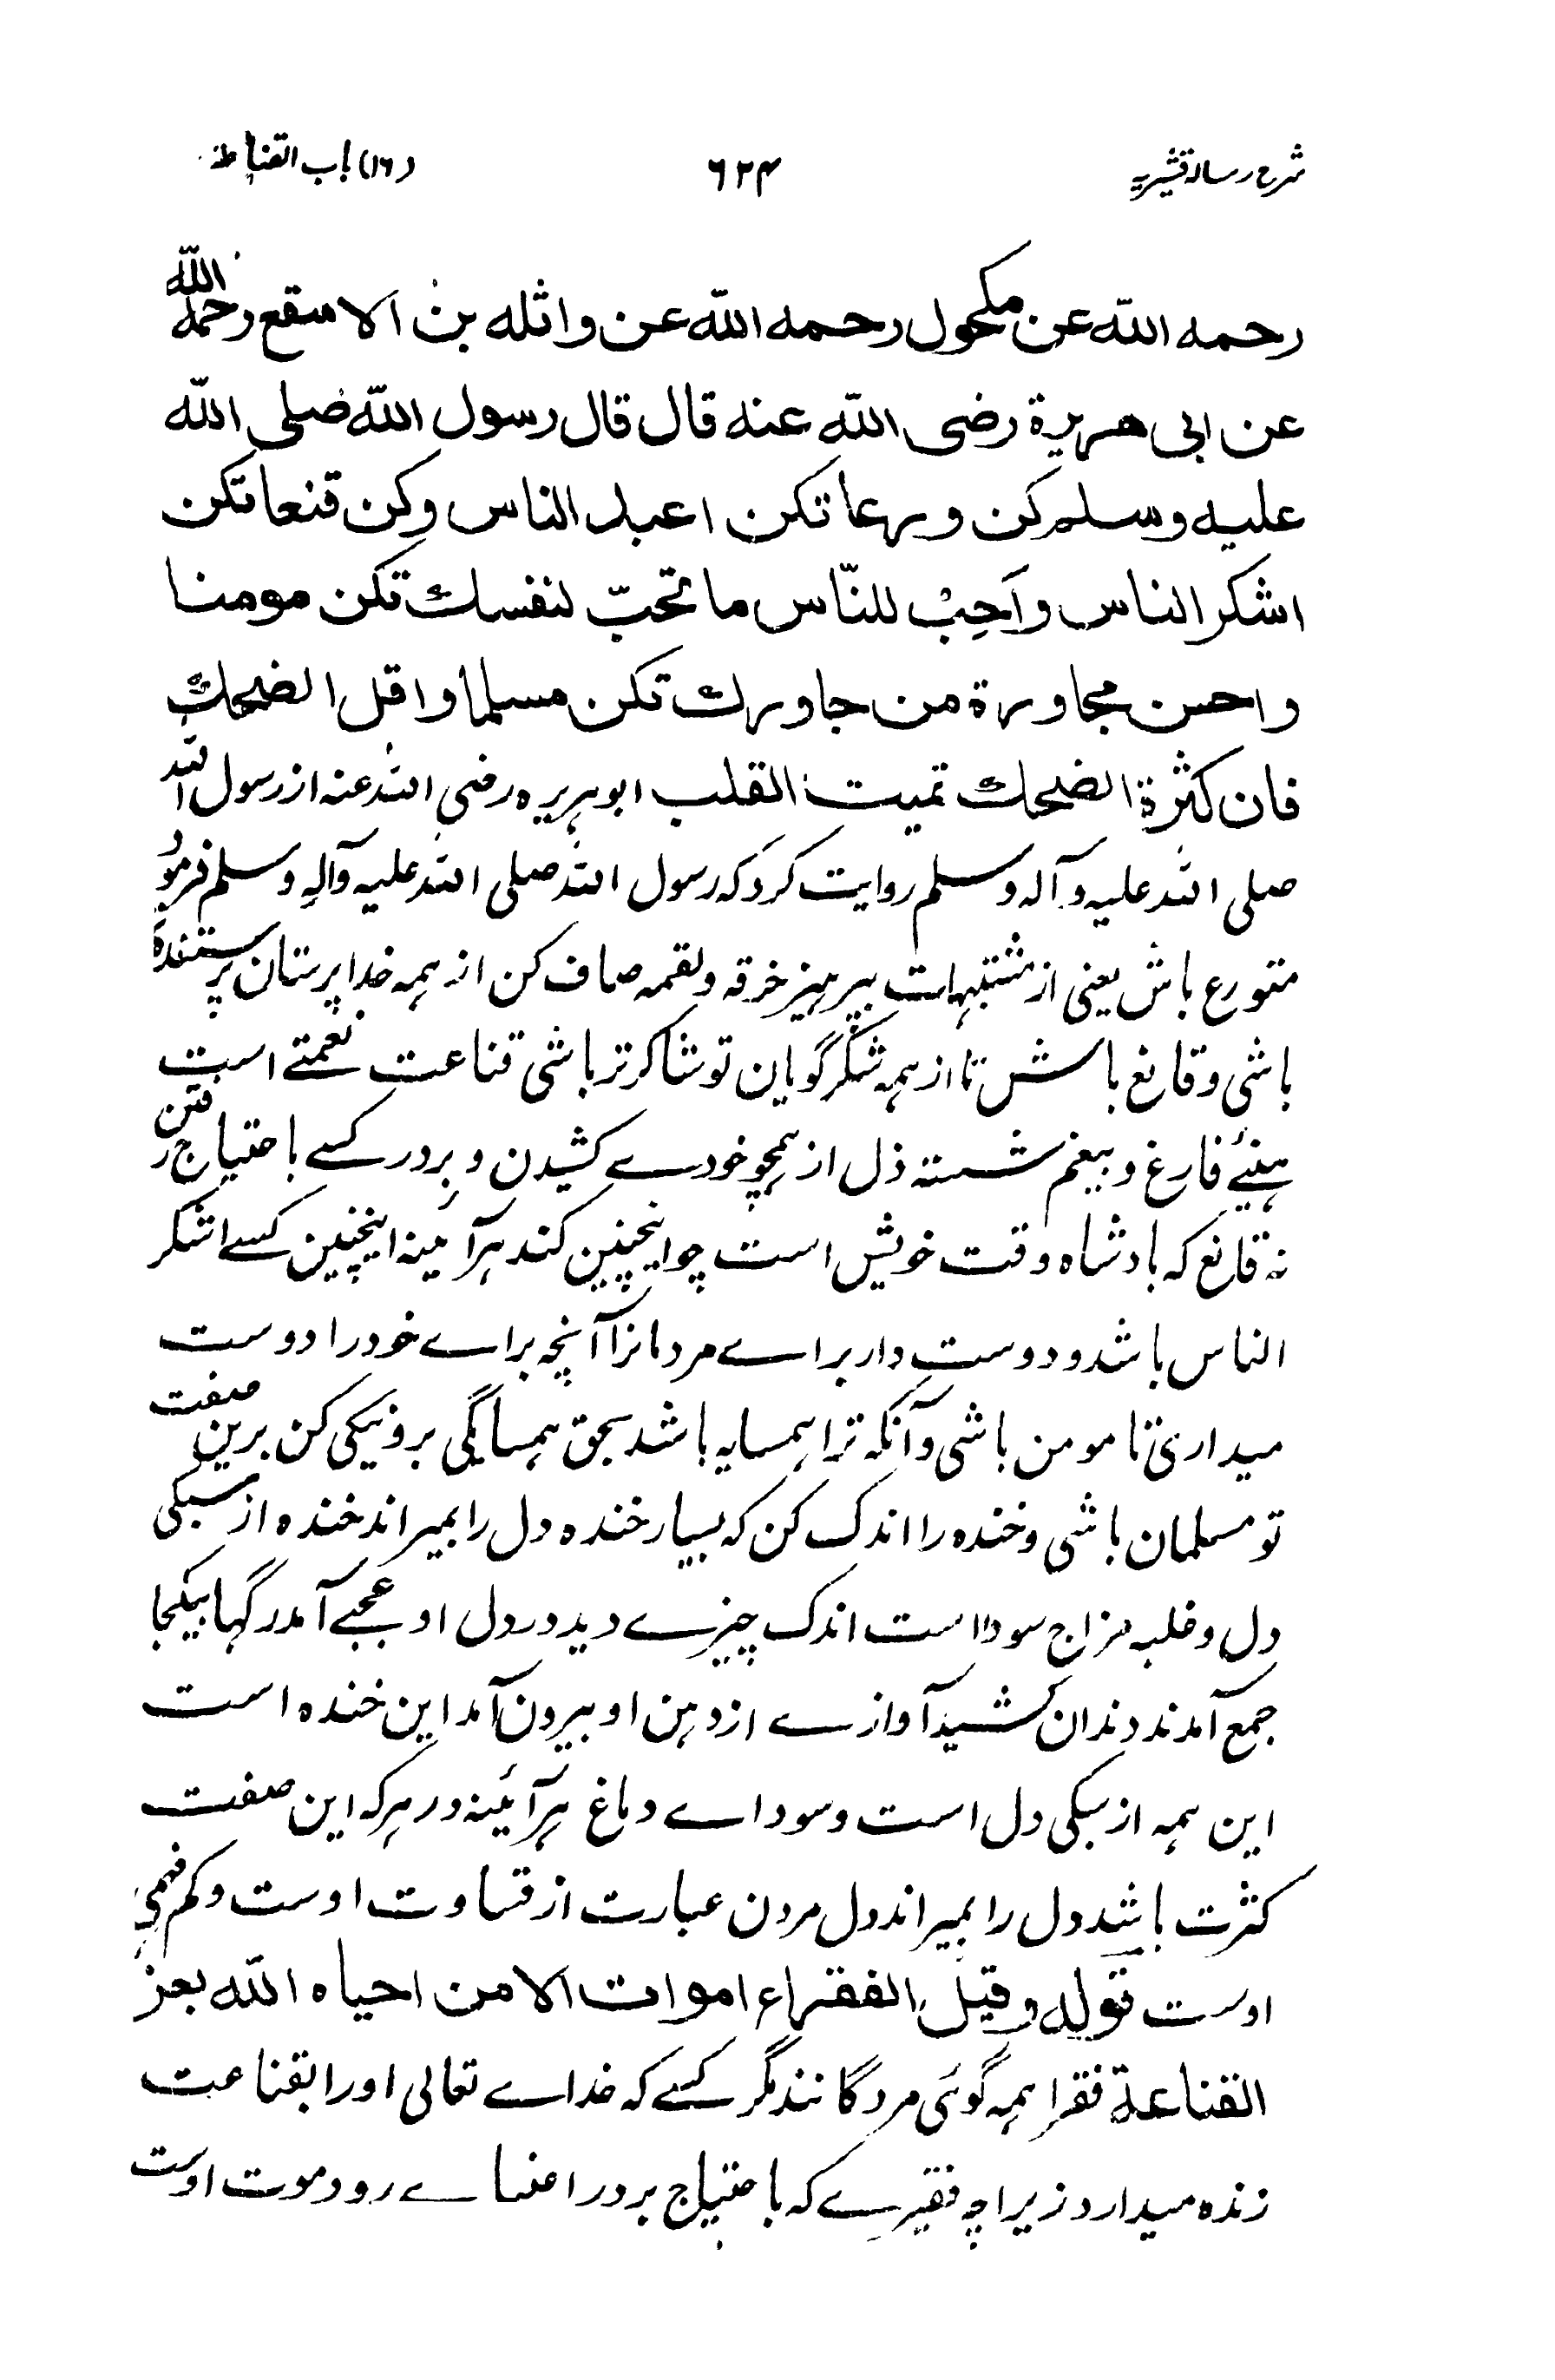 شرح رسالہ قشیریہ ۶۲۴ (۱۶) باب القناعۃ
رحمه الله عن مكحول رحمه الله عن واثله بن الاسقع رحمه الله
عن ابى هريرة رضى الله عنه قال قال رسول الله صلى الله
عليه وسلم كن ورعا تكن اعبد الناس وكن قنعا تكن
اشكر الناس واَحِبْ للنّاس ما تحبّ لنفسك تكن مومنا
واحسن مجاورة من جاورك تكن مسلما واقل الضحك
فان كثرة الضحك تميت القلب ابوہریرہ رضی اللہ عنہ از رسول اللہ
صلی اللہ علیہ وآلہ وسلم روایت کرد کہ رسول اللہ صلی اللہ علیہ وآلہٖ وسلم فرمود
متورع باش یعنی از مشتبہات بپرہیز خرقہ و لقمہ صاف کن از ہمہ خدا پرستان پرستندہ
باشی و قانع باش تا از ہمہ شکرگویان تو شاکر تر باشی قناعت نعمتے است
ہنئے فارغ و بیغم شستہ ذل از ہمچو خودے کشیدن و بر در کسے باحتیاج رفتن
نہ قانع کہ بادشاہ وقت خویش است چو اینچنین کند ہر آئینہ اینچنین کسے اشکر
الناس باشد و دوست دار براے مردمانرا آنچہ براے خود را دوست
میداری تا مومن باشی و آنکہ ترا ہمسایہ باشد بحق ہمسایگی برو نیکی کن برین صفت
تو مسلمان باشی و خندہ را اندک کن کہ بسیار خندہ دل را بمیراند خندہ از سبکی
دل و غلبہ مزاج سودا است اندک چیزے دید در دل او عجبے آمد رگہا بیکجا
جمع آمدند دندان کشید آوازے از دہن او بیرون آمد این خندہ است
این ہمہ از سبکی دل است و سوداے دماغ ہر آئینہ در ہر کہ این صفت
کثرت باشد دل را بمیراند دل مردن عبارت از قساوت اوست و کم فہمی
اوست قوله وقيل الفقراء اموات الا من احياه الله بعز
القناعة فقرا ہمہ گوئی مردگانند مگر کسے کہ خداے تعالی او را بقناعت
زندہ میدارد زیراچہ فقیرے کہ باحتیاج بر در اغنیاے رود موت اوست